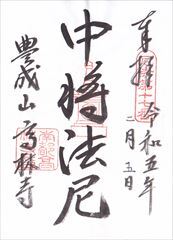 奉拝
令和五年
二月五日
中将法尼
豊成山高林寺